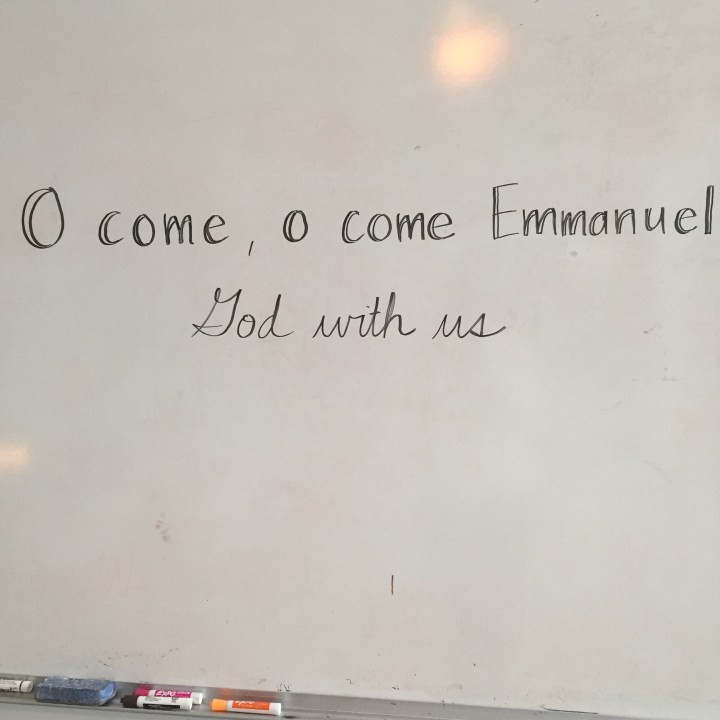 O come, o come Emmanuel
God with us
EXPO